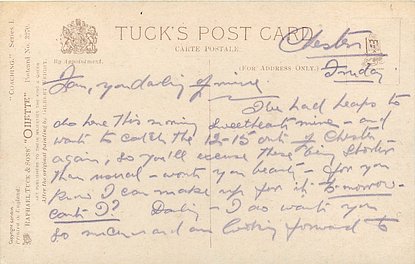 TUCK'S POST CARD
CARTE POSTALE.
By Appointment.
(FOR ADDRESS ONLY.)
Chester
Friday
"COACHING." Series I.
RAPHAEL TUCK & SONS' "OILETTE"
Copyright
Printed in England.
you darling of mine.
I've had heaps to
do here this morning sweetheart mine - and
want to catch the 12-15 out of Chester
again, so you'll excuse these being shorter
than usual - won't you heart - for you
know I can make up for it tomorrow -
can't I? Darling - I do want you
so much and am looking forward to